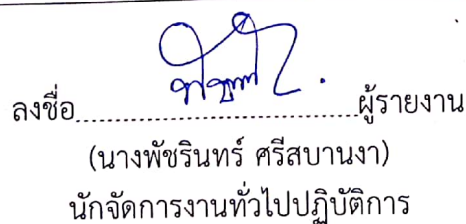 ลงชื่อ..................................ผู้รายงาน
(นางพัชรินทร์ ศรีสบานงา)
นักจัดการงานทั่วไปปฏิบัติการ